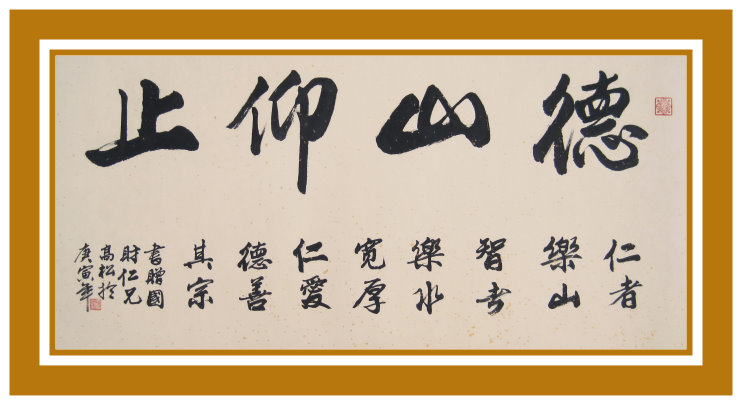 德山仰止
仁者
樂山
智者
樂水
寬厚
仁愛
德善
其宗
書贈國
財仁兄
高松於
庚寅年